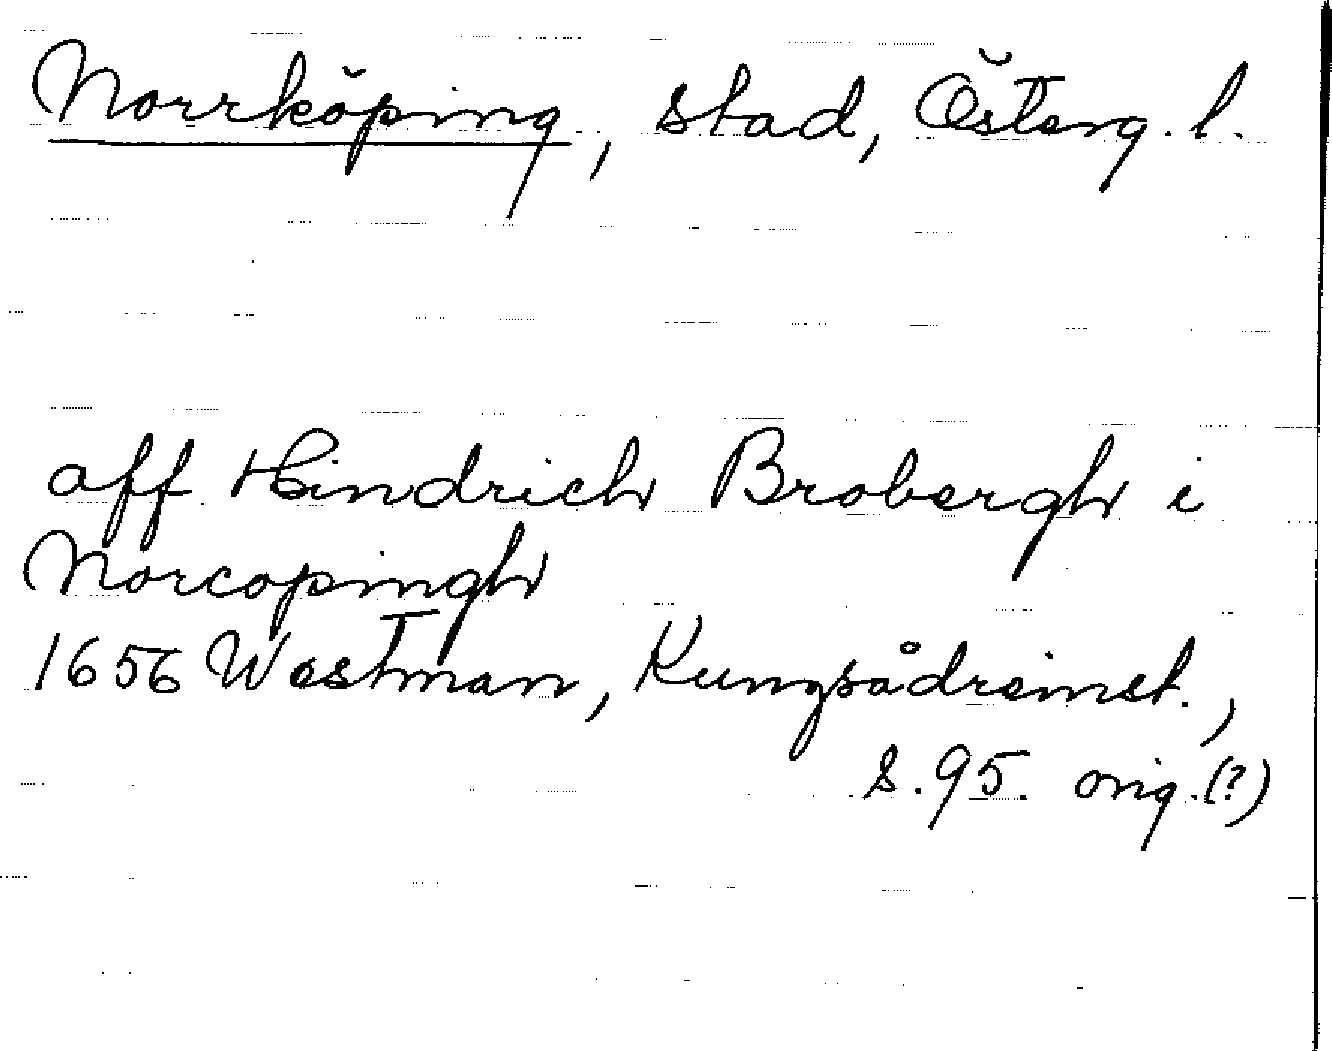 Norrköping, stad, Österg. l.
aff Hindrich Brobergh i
Norcopingh
1656 Westman, Kungsådreinst.,
s. 95. orig. (?)